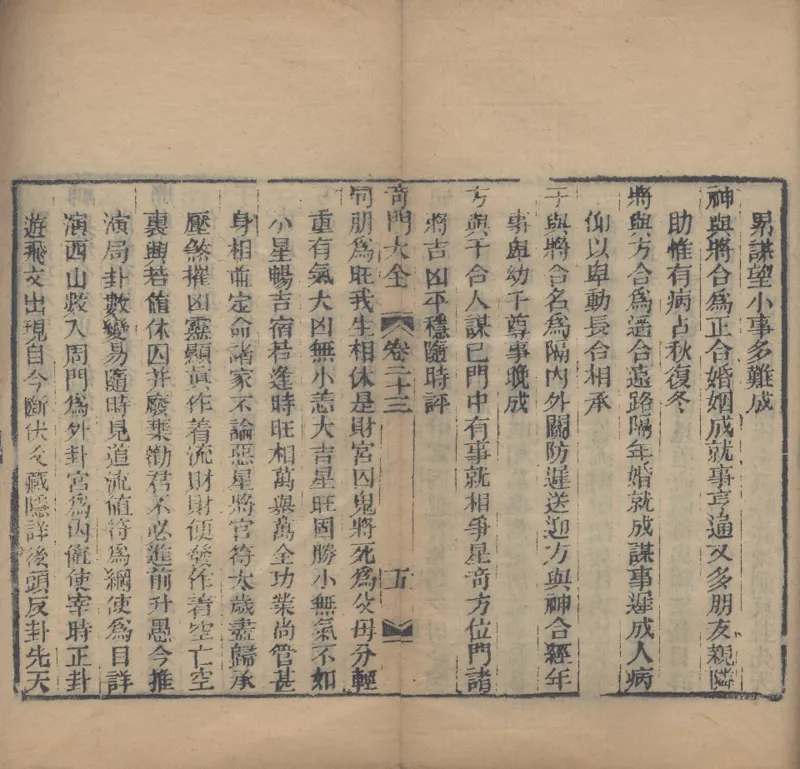 累謀望小事多難成
神與將合為正合婚姻成就事亨通又多朋友親隣
助惟有病占秋復冬
將與方合為遥合遠路隔年婚就成謀事遲成人病
仰以卑動長合相承
干與將合名為隔内外關防遲送迎方與神合經年
事卑幼干尊事晚成
方與干合人謀已門中有事就相爭星奇方位門諸
將吉凶平穩隨時評
奇門大全 卷二十三 五
同朋為旺我生相休是財宮囚鬼將死為父母分輕
重有氣大凶無小恙大吉星旺固勝小無氣不如
小星暢吉宿若逢時旺相萬舉萬全功業尚管甚
身相前定命諸家不論惡星將官符太歲盡歸承
壓煞摧凶靈顯眞作着流財財便發作着空亡空
裏興若值休囚并廢棄勸君不必進前升愚今推
演局卦數變易隨時見道流值符為綱使為目詳
演西山数入周門為外卦宮為内值使宰時正卦
遊飛爻出現自今斷伏爻藏隱詳後頭反卦先天